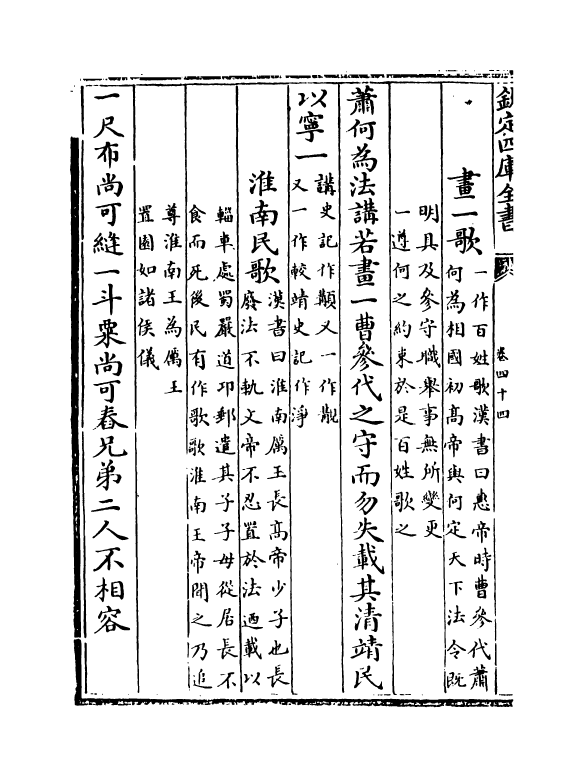 欽定四庫全書
卷四十四
畫一歌
一作百姓歌漢書曰惠帝時曹參代蕭
何為相國初髙帝與何定天下法令既
明具及參守職舉事無所變更
一遵何之約束於是百姓歌之
蕭何為法講若畫一曹參代之守而勿失載其清靖民
以寧一
講史記作顜又一作覯
又一作較靖史記作淨
淮南民歌
漢書曰淮南厲王長髙帝少子也長
廢法不軌文帝不忍置於法迺載以
輜車處蜀嚴道邛郵遣其子子母從居長不
食而死後民有作歌歌淮南王帝聞之乃追
尊淮南王為厲王
置園如諸侯儀
一尺布尚可縫一斗粟尚可舂兄弟二人不相容